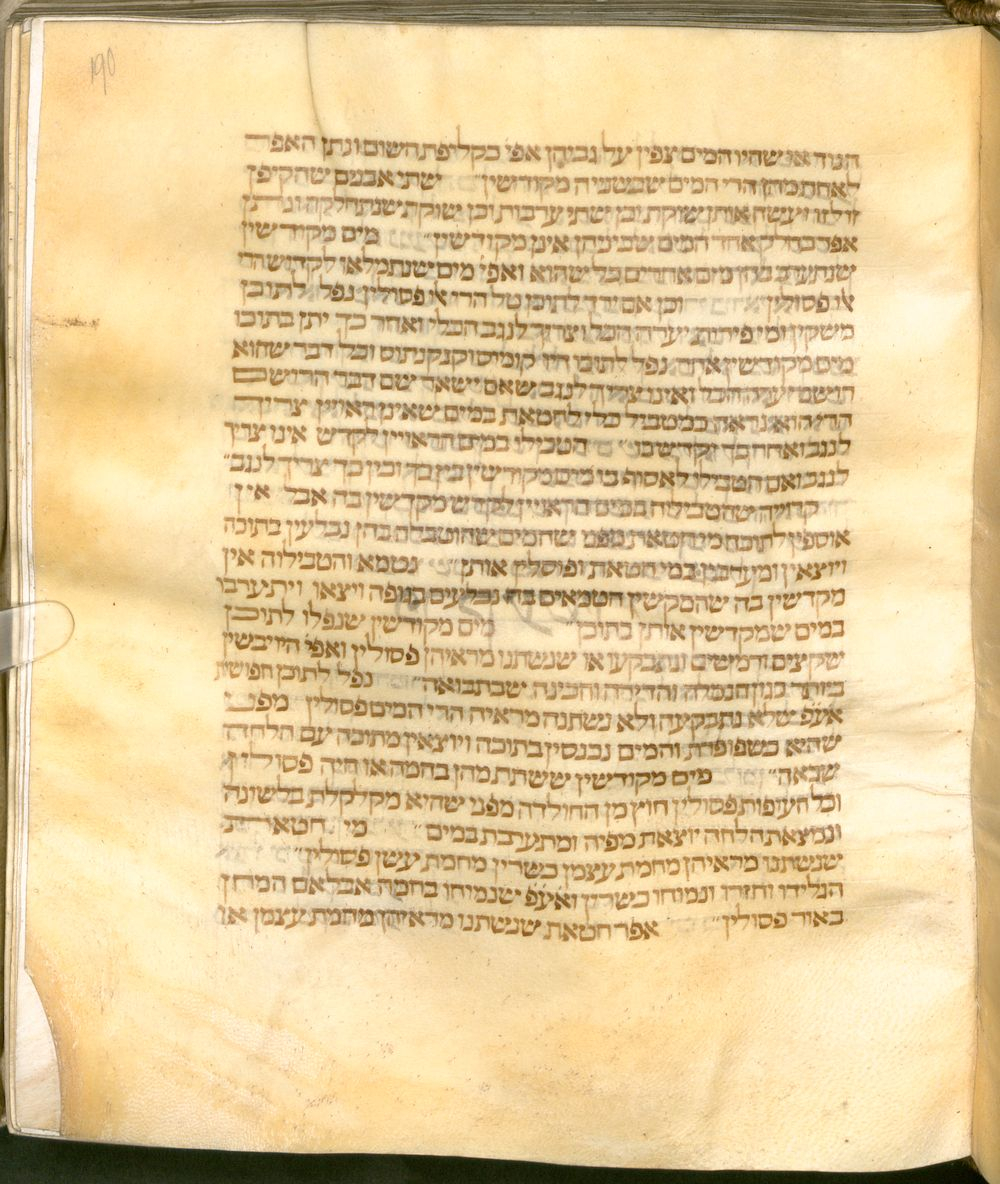 190
הגוד או שהיו המים צפין על גביהן אפי׳ כקליפת השום ונתן האפר
לאחת מהן הרי המים שבשנייה מקודשין״ שתי אבנים שהקיפן
זו לזו ועשה אותן שוקת וכן שתי ערבות וכן שוקת שנחלקה ונתן
אפר באחד המים שביניהן אינן מקודשין״ מים מקודשין
שנתערב בהן מים אחרים כל שהוא ואפי׳ מים שנתמלאו לקדוש הרי
אלו פסולין וכן אם ירד לתוכן טל הרי אלו פסולין נפל לתוכן
משקין ומי פירות יערה הכל וצריך לנגב הכלי ואחר כך יתן בתוכו
מים מקודשין אחרים נפל לתוכן דיו קומוס וקנקנתום וכל דבר שהוא
רושם יערה הכל ואינו צריך לנגב שאם ישאר שם דבר הרושם
הרי הוא נראה המטביל כלי לחטאת במים שאינן ראויין צריך
לנגב ואחר כך יקדש בו״ הטבילו במים הראויין לקדש אינו צריך
לנגב ואם הטבילו לאסוף בו מים מקודשין בין כך ובין כך צריך לנגב״
קרויה שהטבילוה במים הראויין לקדש מקדשין בה אבל אין
אוספין לתוכה מי חטאת מפני שהמים שהוטבלה בהן נבלעין בתוכה
ויוצאין ומתערבין במי חטאת ופוסלין אותן״ נטמא והטבילוה אין
מקדשין בה שהמשקין הטמאים בה נבלעים בגופה ויצאו ויתערבו
במים שמקדשין אותן בתוכן״ מים מקודשין שנפלו לתוכן
שקצים ורמשים ונתבקעו או שנשתנו מראיהן פסולין ואפי׳ היו יבשין
ביותר כגון הנמלה והדירה והכינה שבתבואה״ נפל לתוכן חפושית
אע״פ שלא נתבקעה ולא נשתנה מראיה הרי המים פסולין מפני
שהיא כשפופרת והמים נכנסין בתוכה ויוצאין מתוכה עם הלחה
שבאה״ מים מקודשין ששתת מהן בהמה או חיה פסולין
וכל העופות פסולין חוץ מן החולדה מפני שהיא מקלקלת בלשונה
ונמצאת הלחה יוצאת מפיה ומתערבת במים״ מי חטאת
שנשתנו מראיהן מחמת עצמן כשרין מחמת עשן פסולין״
הגלידו וחזרו ונמוחו כשרין ואע״פ שנמוחו בחמה אבל אם המחן
באור פסולין״ אפר חטאת שנשתנו מראיהן מחמת עצמן או